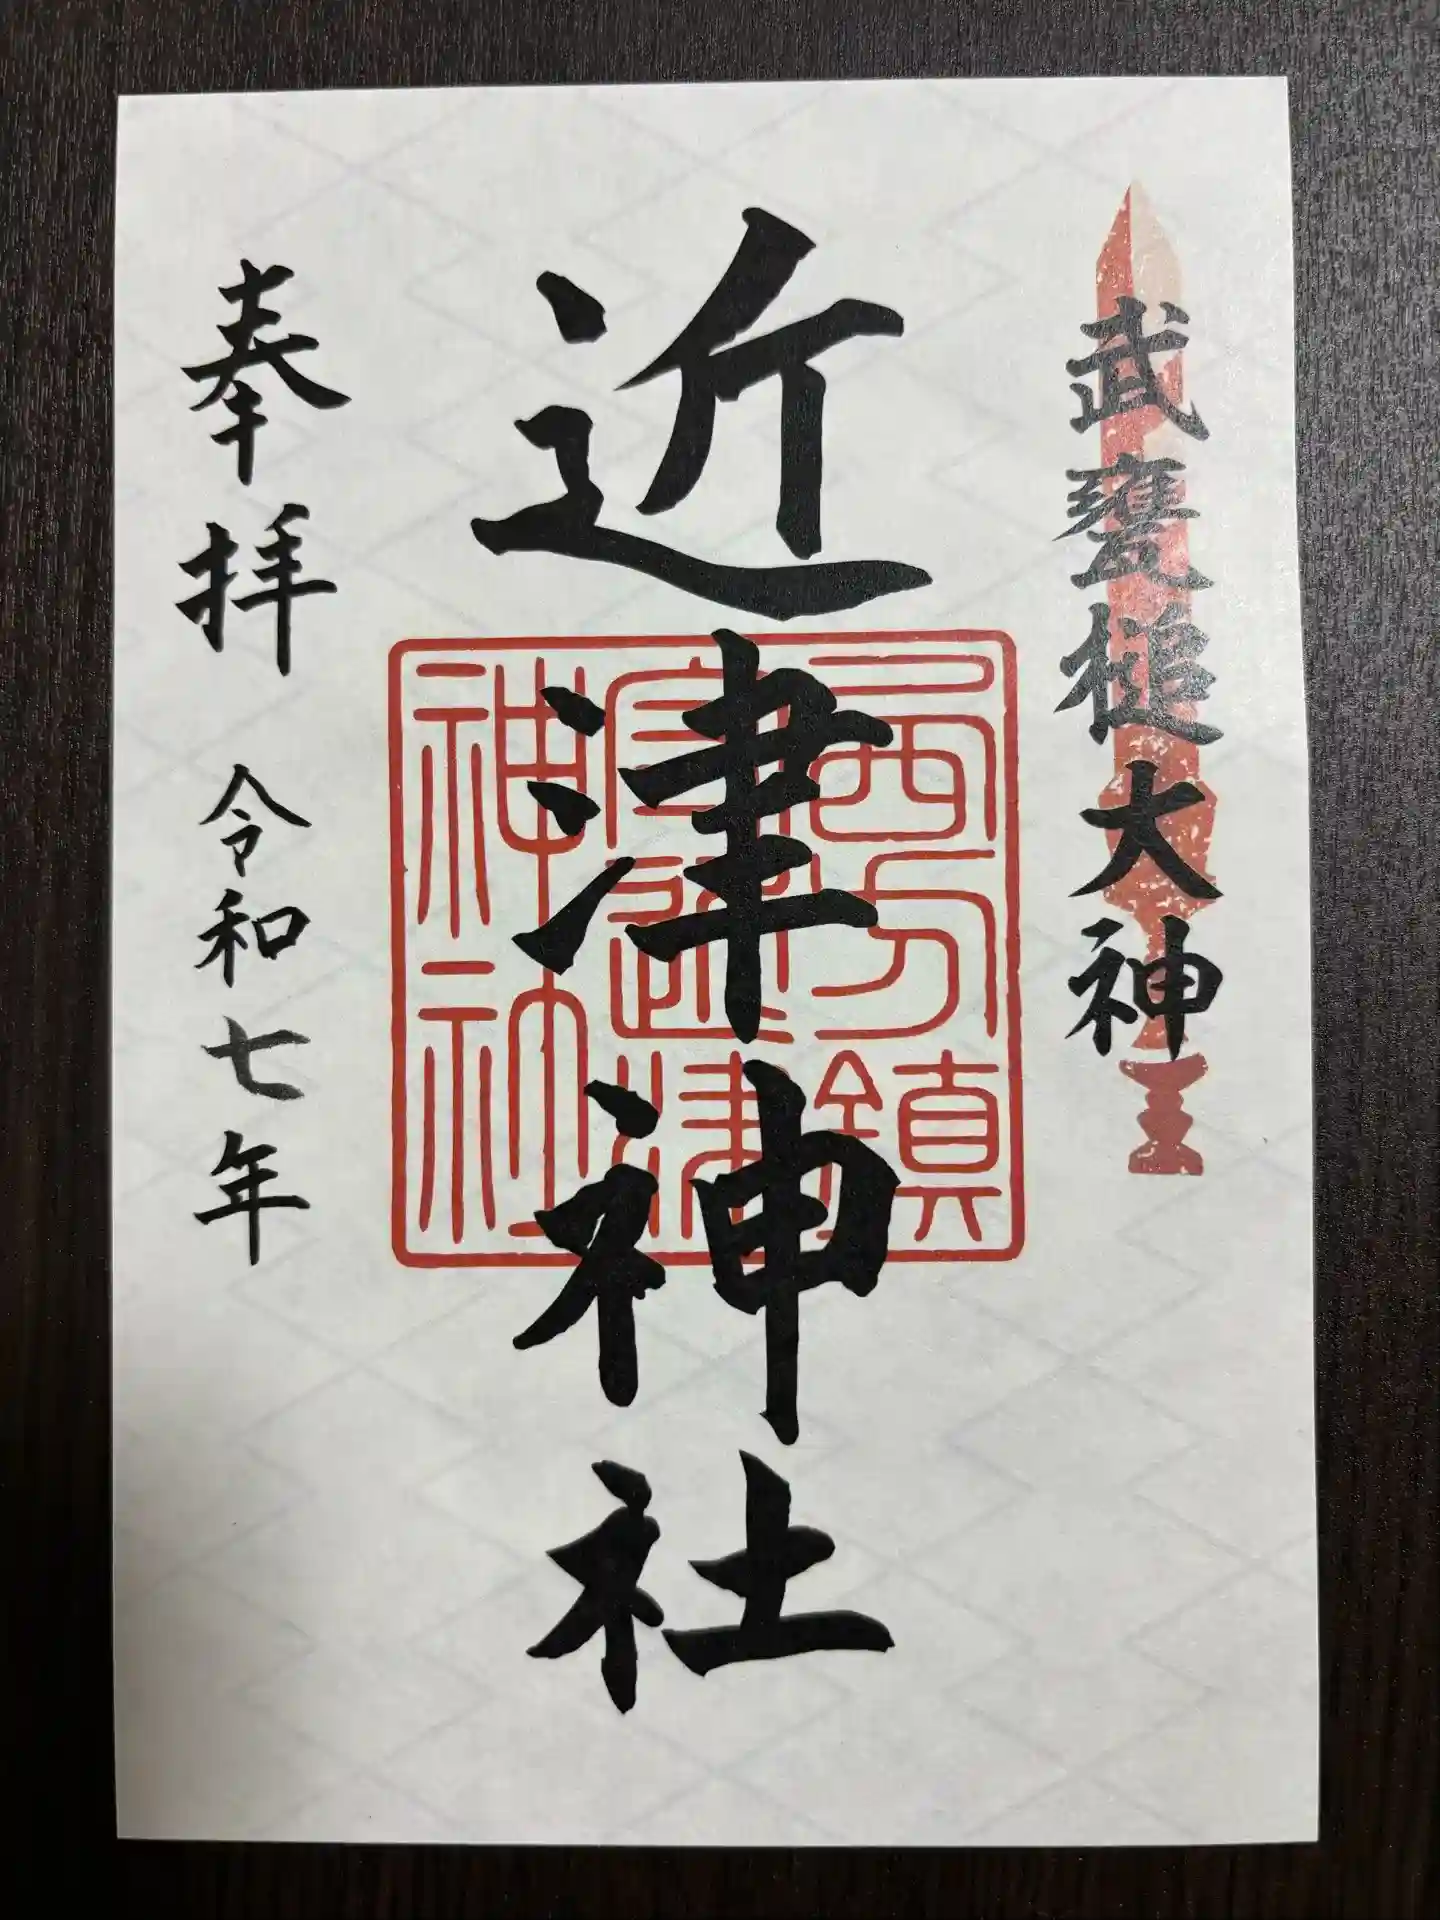 武甕槌大神
近津神社
西方鎮
宮近津
神社
奉拝
令和七年